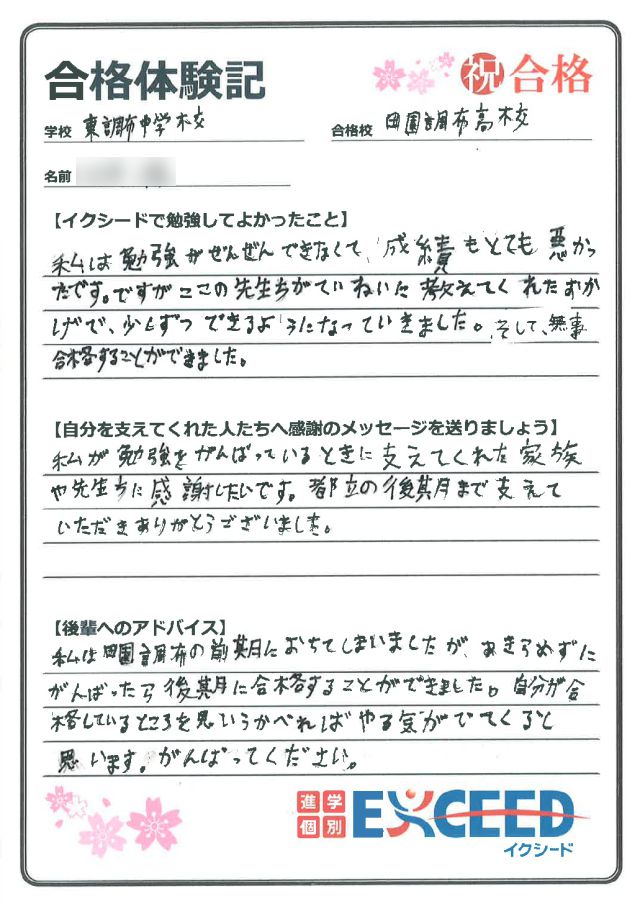 合格体験記
祝 合格
学校 東調布中学校
合格校 田園調布高校
名前
【イクシードで勉強してよかったこと】
私は勉強がぜんぜんできなくて、成績もとても悪かっ
たです。ですがここの先生ちがていねいに教えてくれたおか
げで、少しずつできるようになっていきました。そして、無事
合格することができました。
【自分を支えてくれた人たちへ感謝のメッセージを送りましょう】
私が勉強をがんばっているときに支えてくれた家族
や先生ちに感謝したいです。都立の後期まで支えて
いただきありがとうございました。
【後輩へのアドバイス】
私は田園調布の前期におちてしまいましたが、あきらめずに
がんばったら後期に合格することができました。自分が合
格しているところを思いうかべればやる気がでてくると
思います。がんばってください。
進学
個別
EXCEED
イクシード